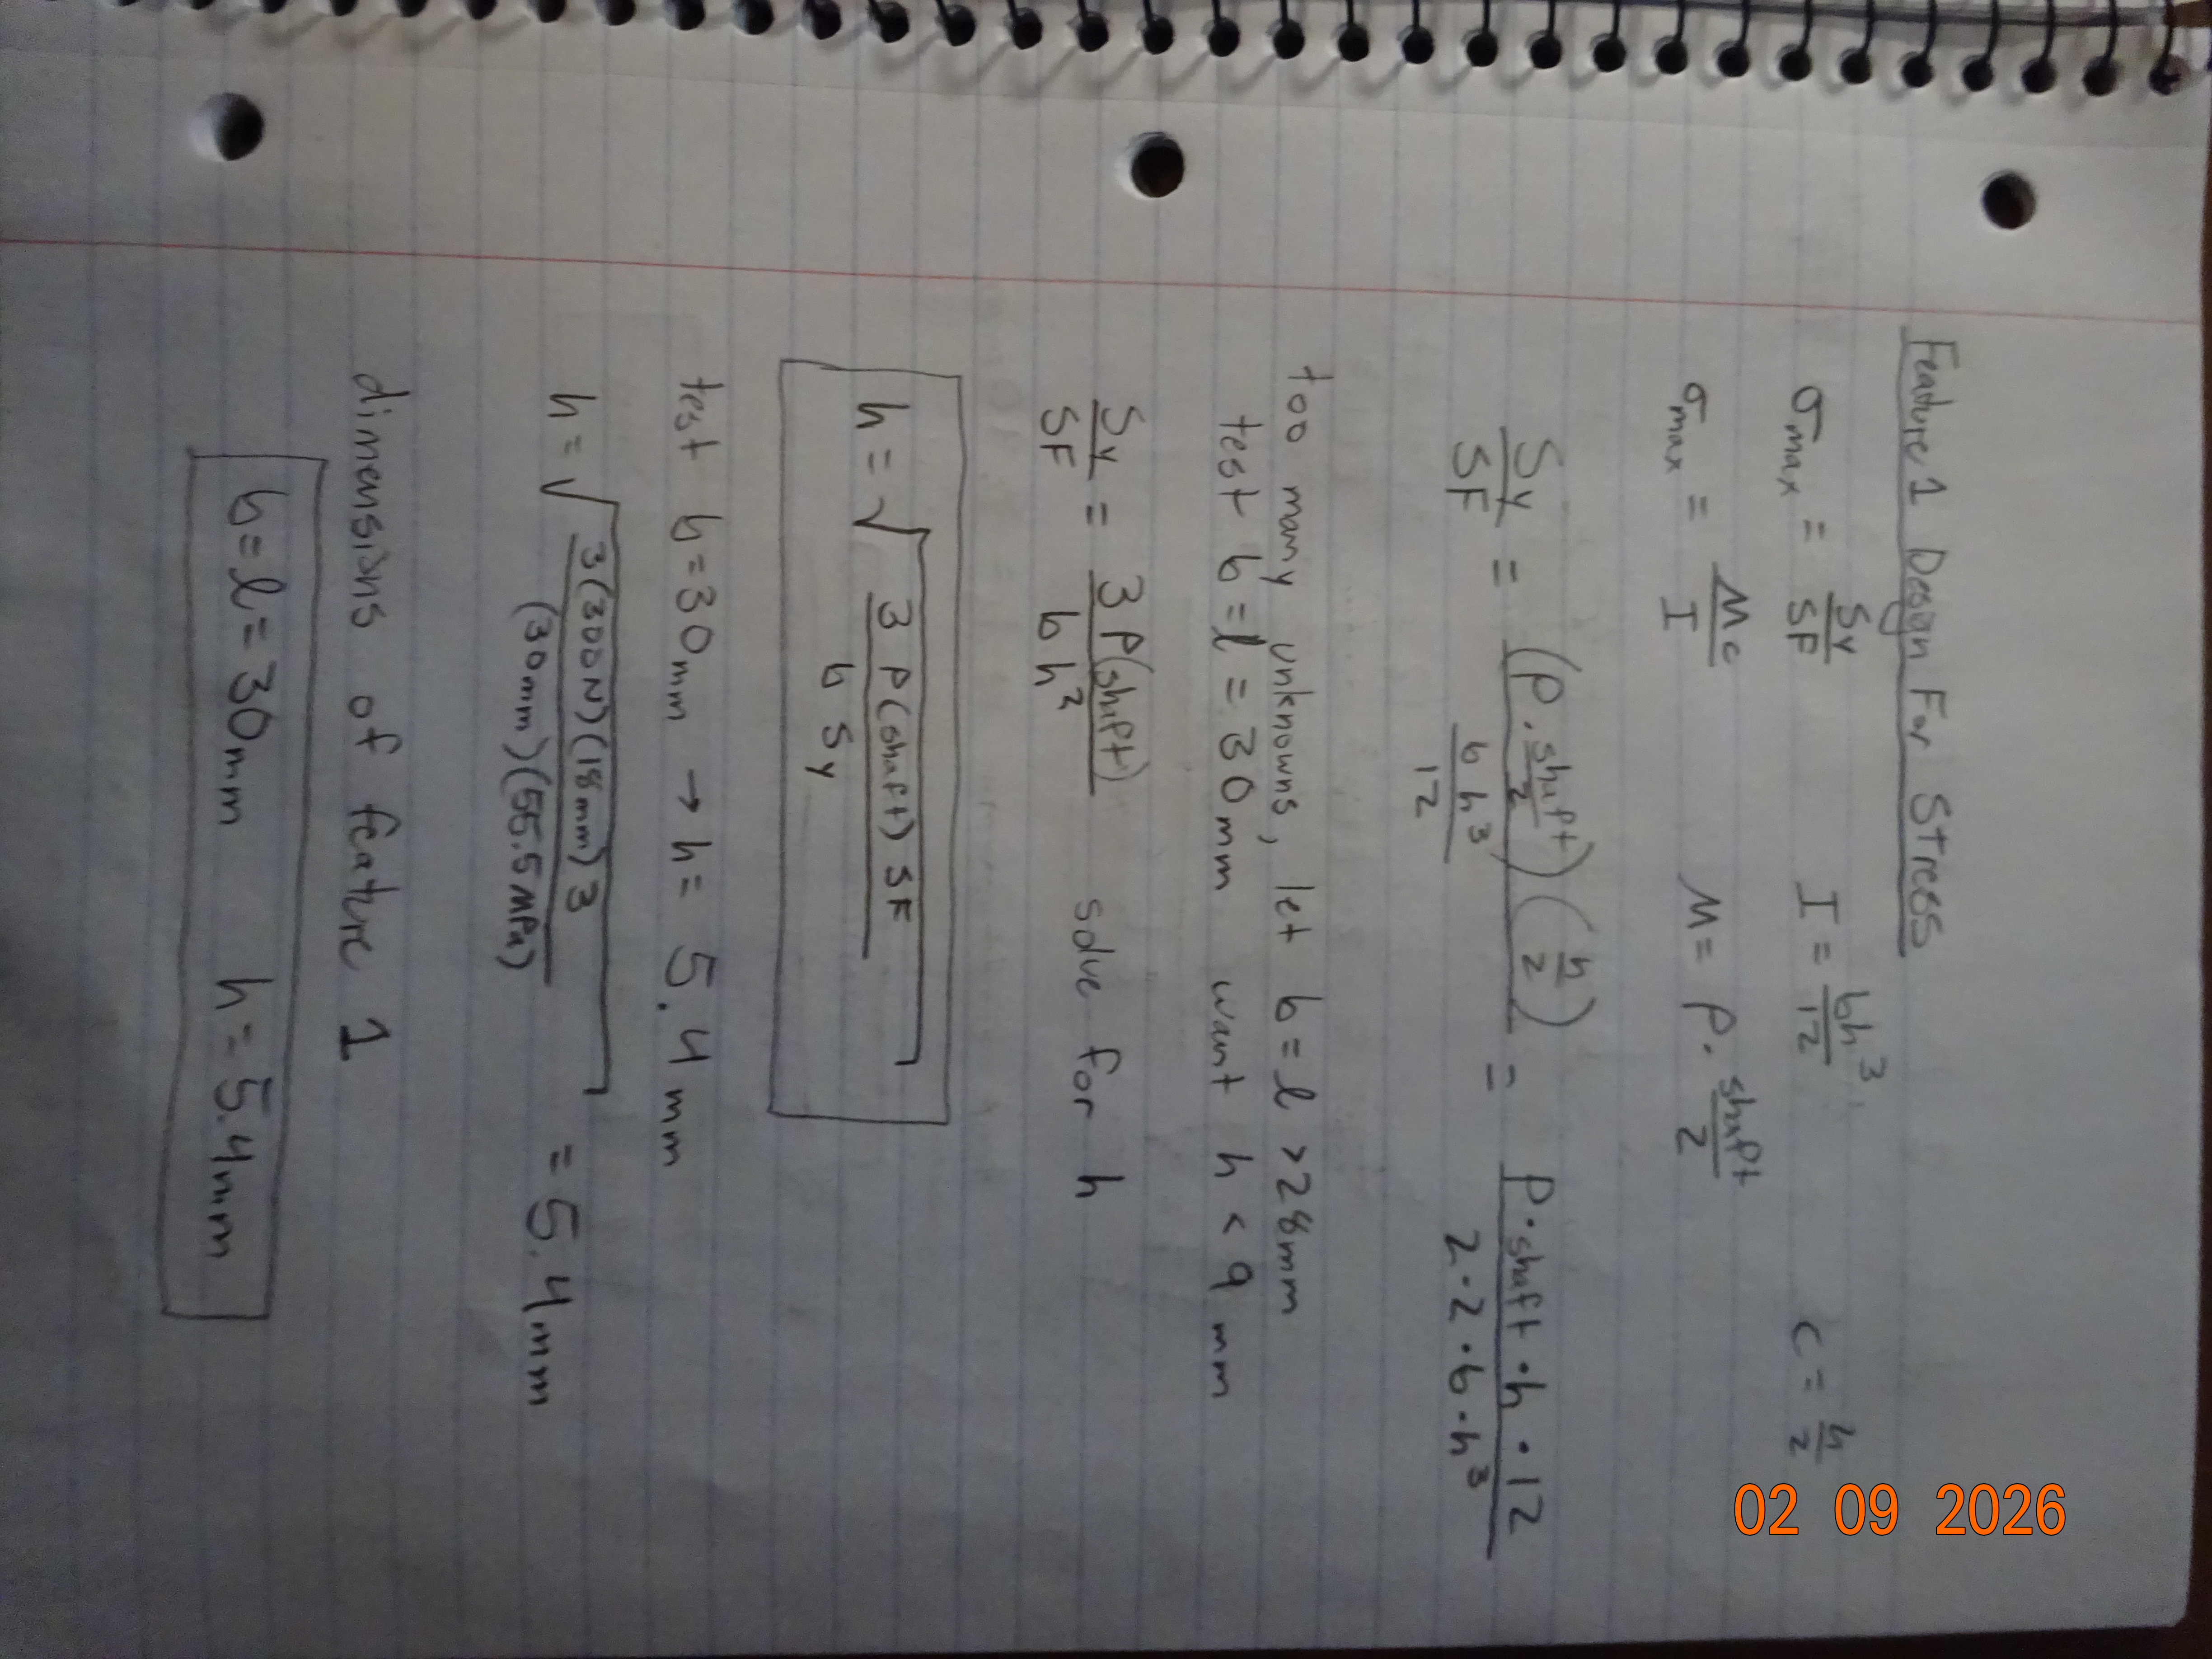 Feature 1 Design For Stress
σmax = Sy/SF    I = bh³/12    c = h/2
σmax = Mc/I    M = P · shaft/2
Sy/SF = (P · shaft/2)(h/2) / (bh³/12) = P·shaft·h·12 / 2·2·b·h³
too many unknowns, let b = l > 28mm
test b = l = 30mm want h < 9 mm
Sy/SF = 3P(shaft) / bh² solve for h
h = √(3P(shaft)SF / b Sy)
test b = 30mm → h = 5.4 mm
h = √(3(300N)(18mm)3 / (30mm)(55.5MPa)) = 5.4mm
dimensions of feature 1
b = l = 30mm    h = 5.4mm
02 09 2026